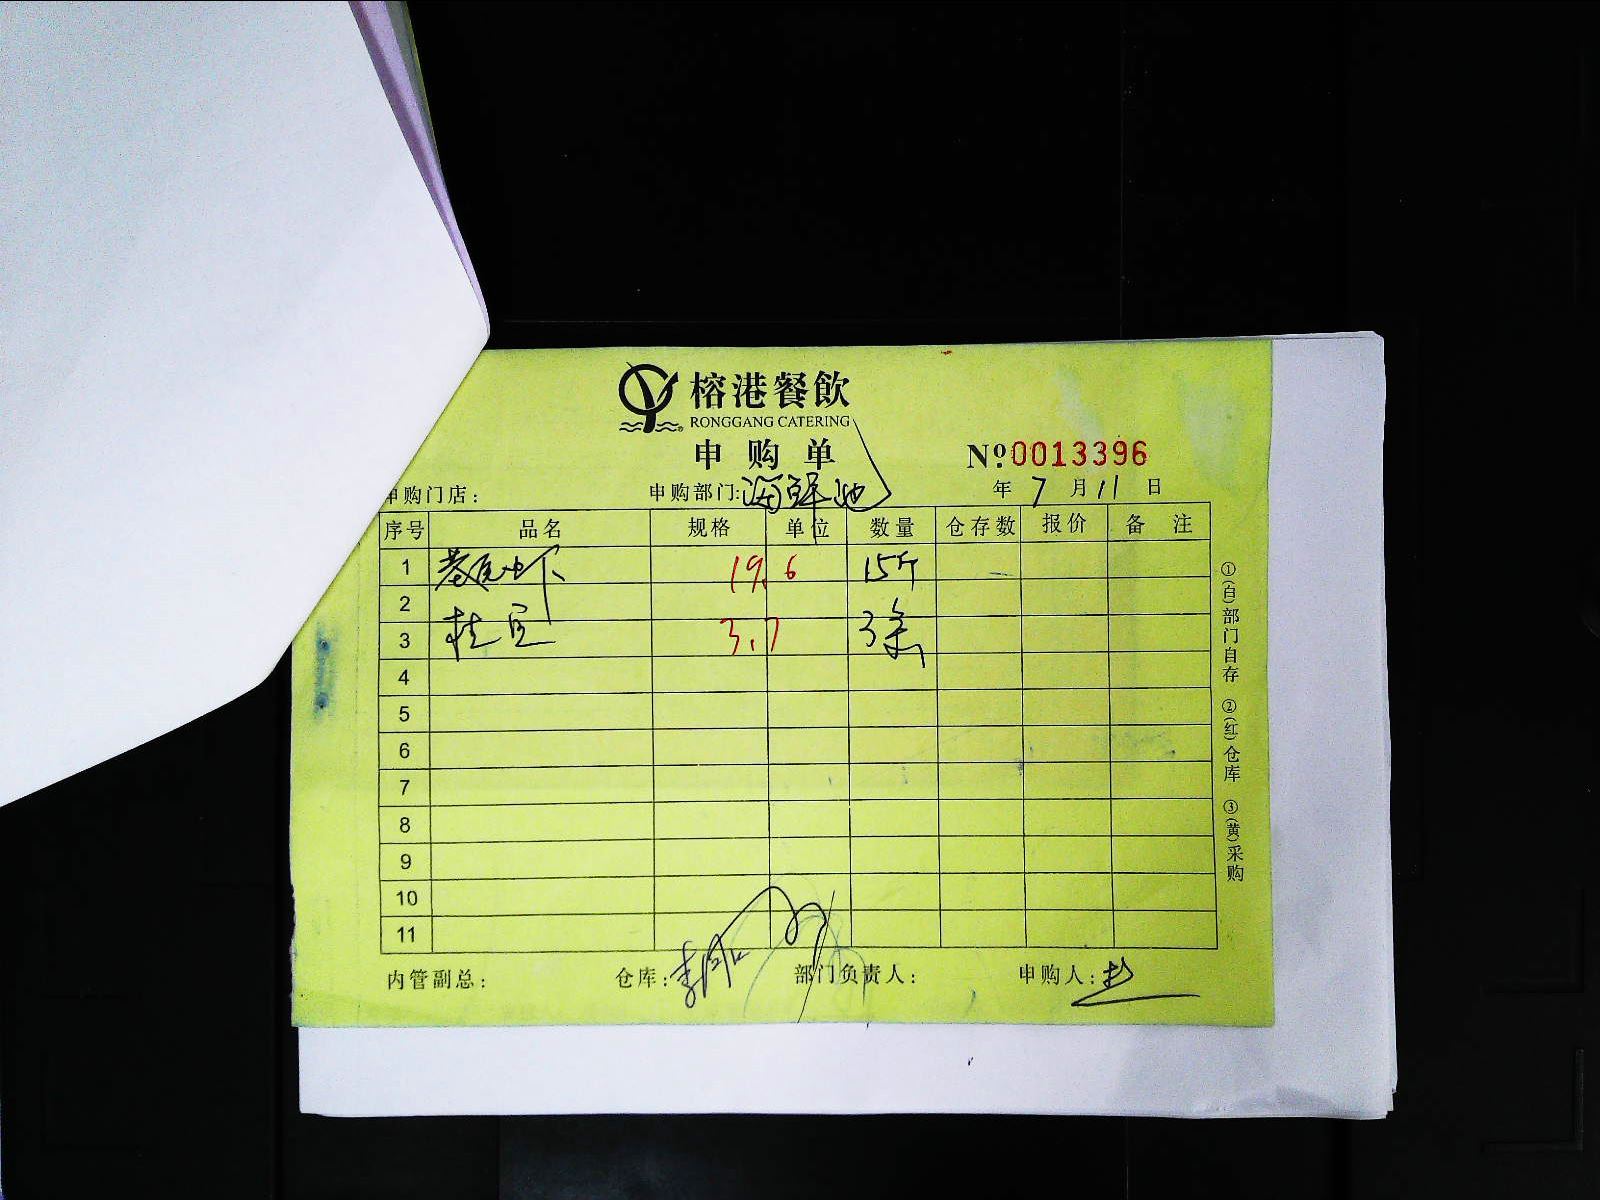 榕港餐飲
RONGGANG CATERING
申购单
Nº 0013396
申购门店:
申购部门:海鲜池
年 7 月 11 日
序号 品名 规格 单位 数量 仓存数 报价 备注
1 基尾虾 19.6 15斤
2
3 桂 3.7 3条
4
5
6
7
8
9
10
11
内管副总:
仓库:
部门负责人:
申购人:
①(白)部门自存 ②(红)仓库 ③(黄)采购